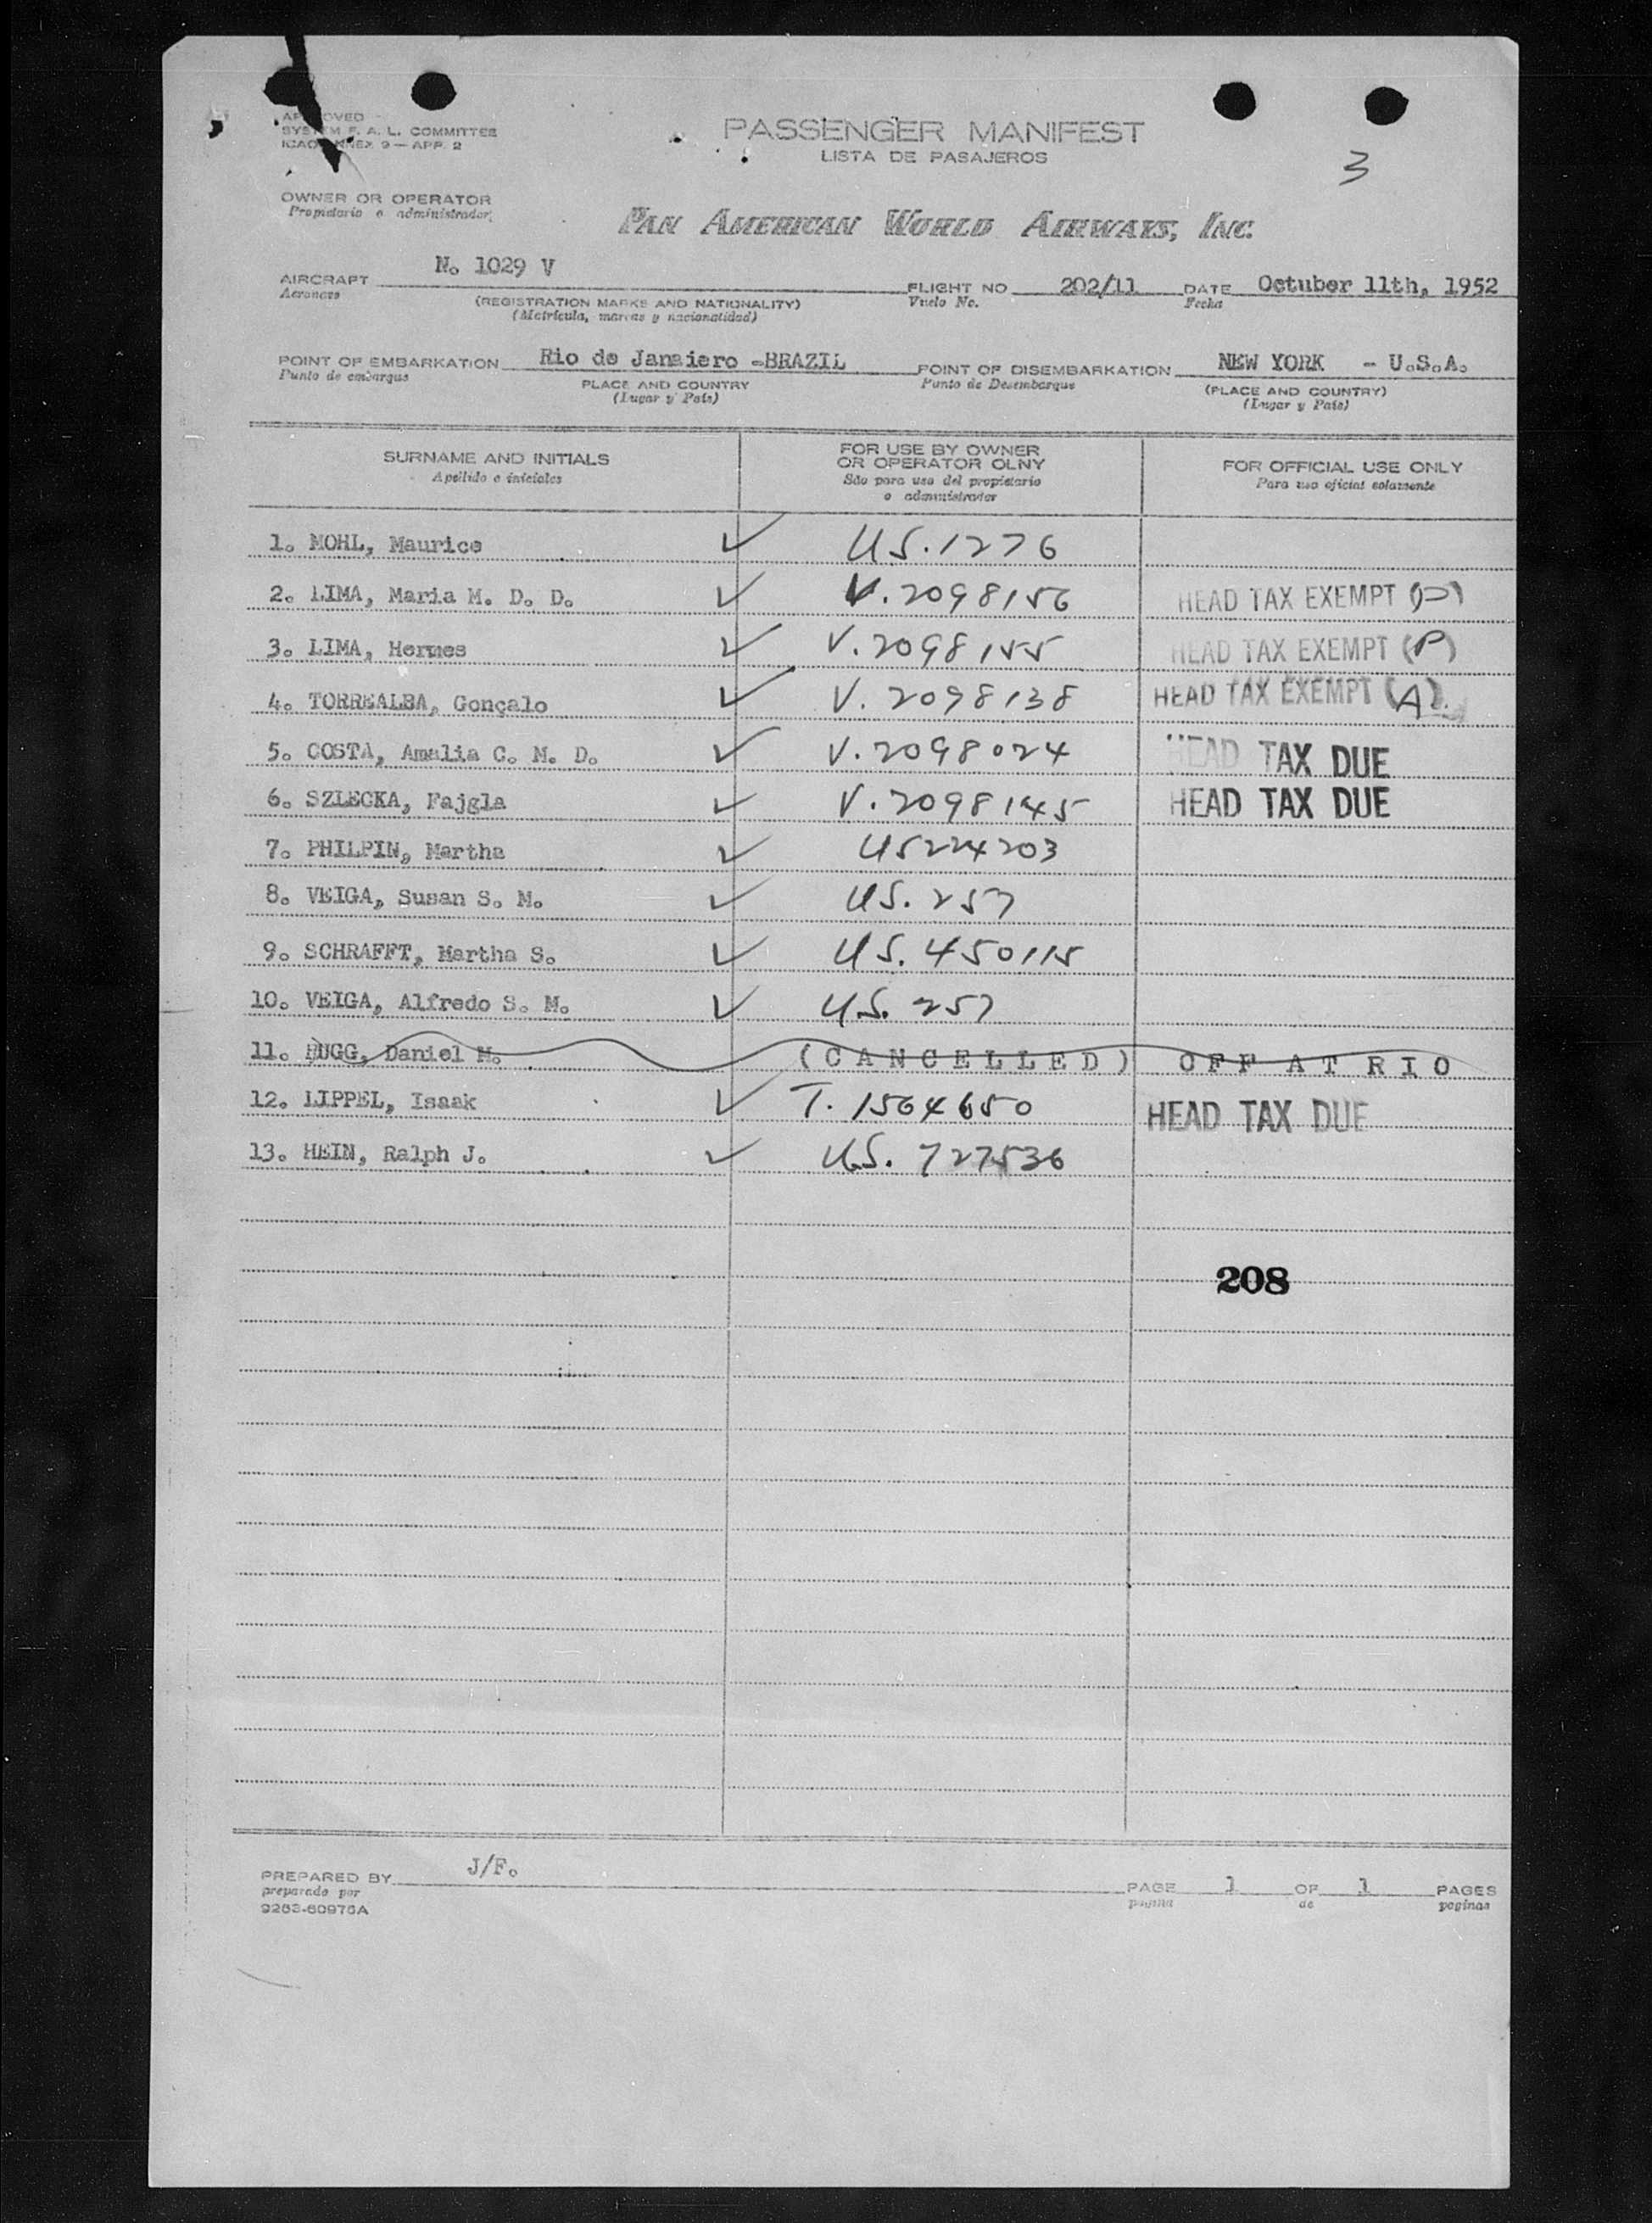 APPROVED
SYSTEM F. A. L. COMMITTEE
ICAO ANNEX 9 — APP. 2
PASSENGER MANIFEST
LISTA DE PASAJEROS
3
OWNER OR OPERATOR
Propietario o administrador
PAN AMERICAN WORLD AIRWAYS, INC.
AIRCRAFT No 1029 V FLIGHT NO 202/11 DATE Octuber 11th, 1952
Aeronave (REGISTRATION MARKS AND NATIONALITY) Vuelo No. Fecha
(Matrícula, marcas y nacionalidad)
POINT OF EMBARKATION Rio de Janaiero -BRAZIL POINT OF DISEMBARKATION NEW YORK - U.S.A.
Punto de embarque PLACE AND COUNTRY Punto de Desembarque (PLACE AND COUNTRY)
(Lugar y País) (Lugar y País)
SURNAME AND INITIALS FOR USE BY OWNER OR OPERATOR OLNY FOR OFFICIAL USE ONLY
Apellido e iniciales Sólo para uso del propietario o administrador Para uso oficial solamente
1. MOHL, Maurice ✓ US.1276
2. LIMA, Maria M. D. D. ✓ V.2098156 HEAD TAX EXEMPT (P)
3. LIMA, Hermes ✓ V.2098155 HEAD TAX EXEMPT (P)
4. TORREALBA, Gonçalo ✓ V.2098138 HEAD TAX EXEMPT (A).
5. COSTA, Amalia C. M. D. ✓ V.2098024 HEAD TAX DUE
6. SZLECKA, Fajgla ✓ V.2098145 HEAD TAX DUE
7. PHILPIN, Martha ✓ US224203
8. VEIGA, Susan S. M. ✓ US.257
9. SCHRAFFT, Martha S. ✓ US.450115
10. VEIGA, Alfredo S. M. ✓ U.S. 257
11. BUGG, Daniel M. (CANCELLED) OFF AT RIO
12. LIPPEL, Isaak ✓ T.1564650 HEAD TAX DUE
13. HEIN, Ralph J. ✓ U.S. 727536
208
PREPARED BY J/F. PAGE 1 OF 1 PAGES
preparado por página de paginas
9263-60976A